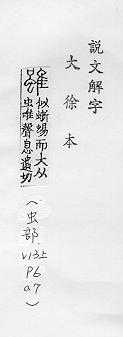 說文解字
大徐本
雖 似蜥蜴而大从
虫唯聲息遺切
(虫部. V13上 P6 a7)